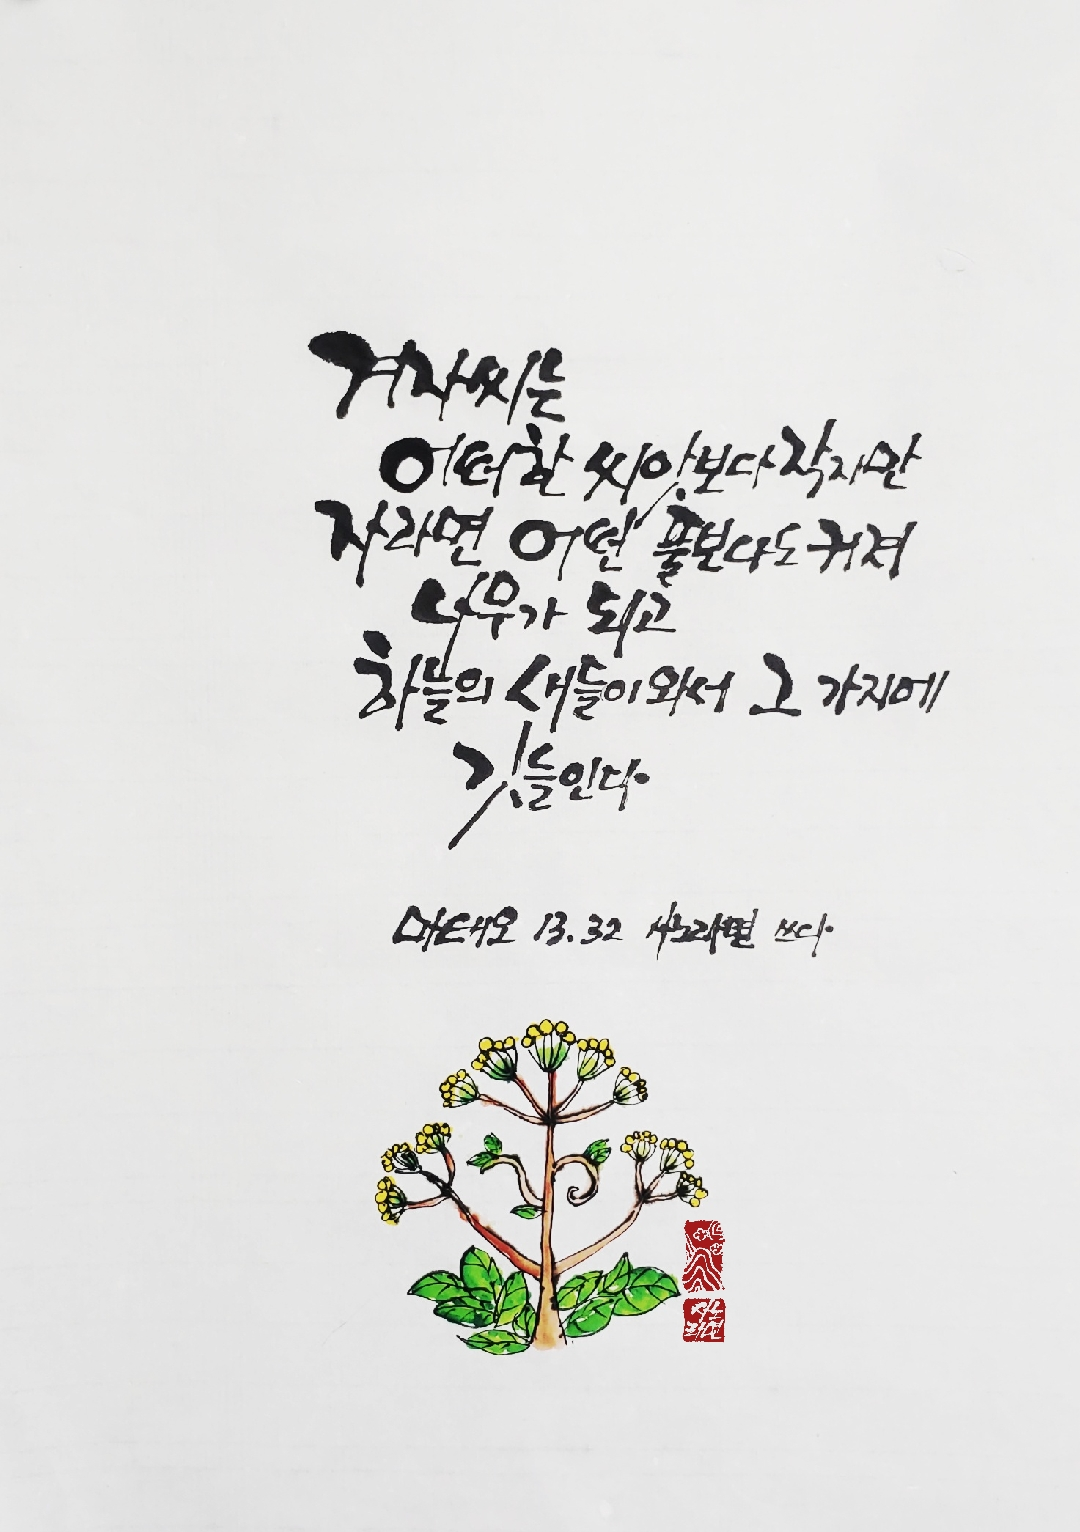 겨자씨는
어떠한 씨앗보다 작지만
자라면 어떤 풀보다도 커져
나무가 되고
하늘의 새들이 와서 그 가지에
깃들인다.
마태오 13.32 쓰다.